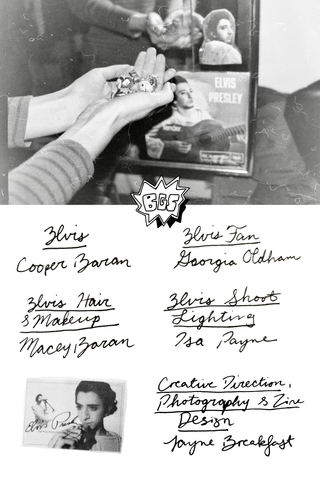 ELVIS
PRESLEY
BGS
Elvis
Cooper Baran
Elvis Fan
Georgia Oldham
Elvis Hair
& Makeup
Macey Baran
Elvis Shoot
Lighting
Isa Payne
Elvis Presley
Creative Direction,
Photography & Zine
Design
Jayne Breakfast